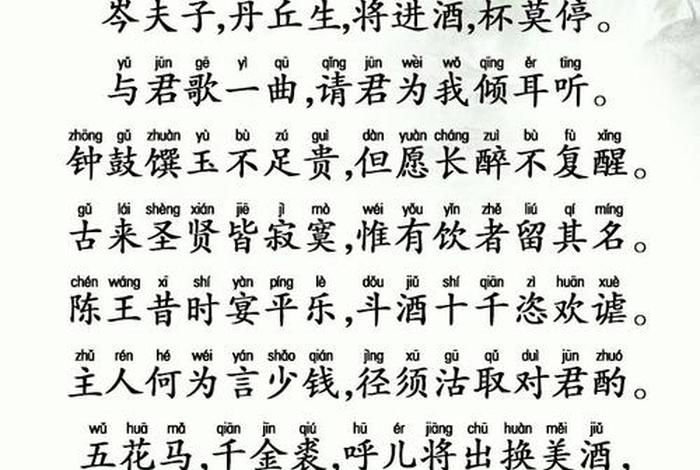 岑夫子,丹丘生,将进酒,杯莫停。
yǔ jūn gē yì qǔ qǐng jūn wèi wǒ qīng ěr tīng
与君歌一曲,请君为我倾耳听。
zhōng gǔ zhuàn yù bù zú guì dàn yuàn cháng zuì bù fù xǐng
钟鼓馔玉不足贵,但愿长醉不复醒。
gǔ lái shèng xián jiē jì mò wéi yǒu yǐn zhě liú qí míng
古来圣贤皆寂寞,惟有饮者留其名。
chén wáng xī shí yàn píng lè dǒu jiǔ shí qiān zì huān xuè
陈王昔时宴平乐,斗酒十千恣欢谑。
zhǔ rén hé wéi yán shǎo qián jìng xū gū qǔ duì jūn zhuó
主人何为言少钱,径须沽取对君酌。
wǔ huā mǎ qiān jīn qiú hū ér jiāng chū huàn měi jiǔ
五花马,千金裘,呼儿将出换美酒,